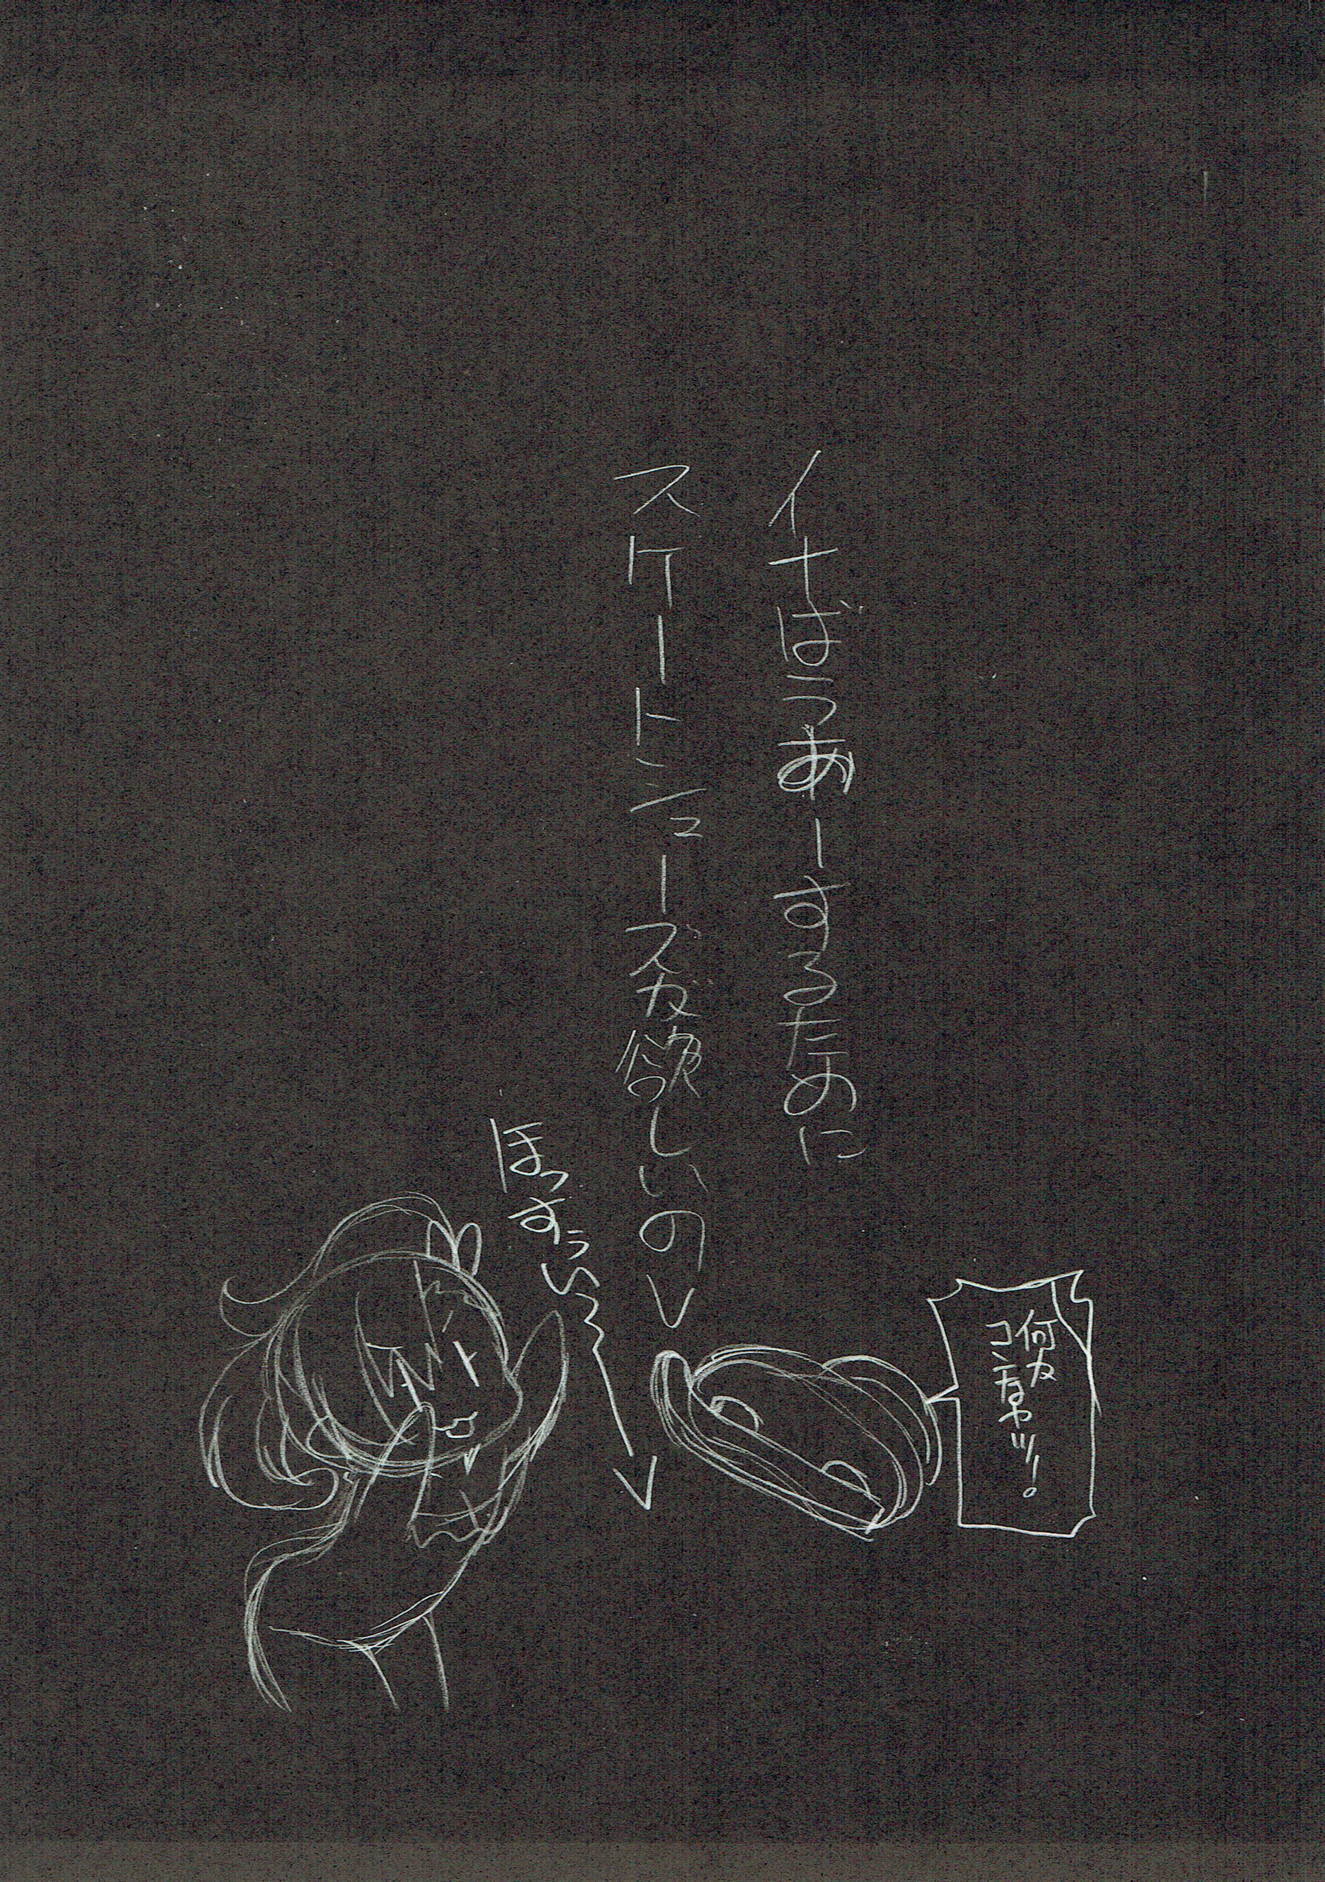 イナばうあーするために
スケートシューズが欲しいの
ほっすぅい～
何か
コンなヤツ!。